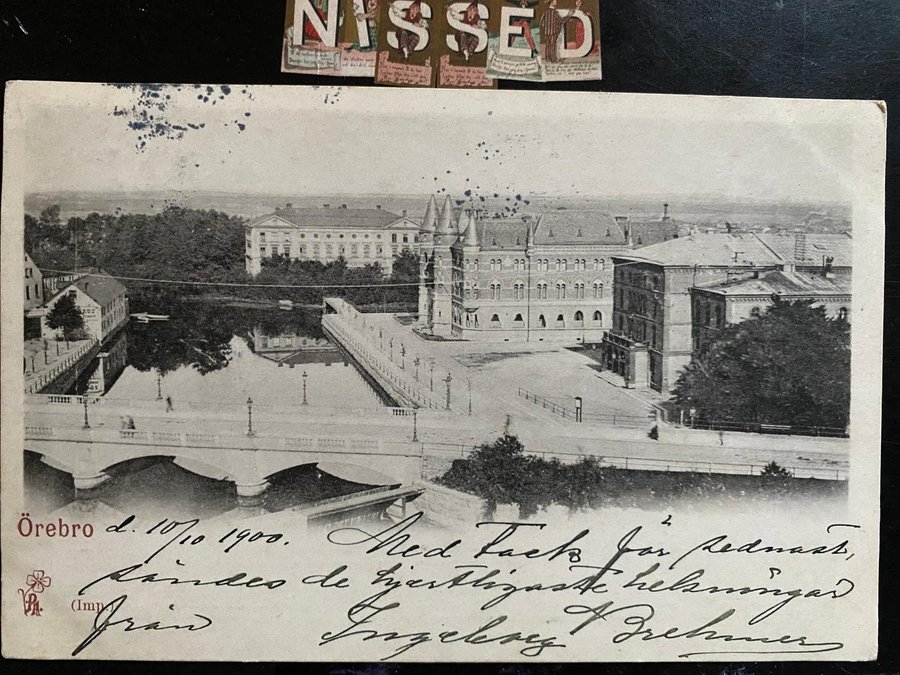 NISSED
Örebro d. 10/10 1900. Med Tack för sednast,
sändes de hjertligaste helsningar
(Imp.) från Ingeborg Brehmer